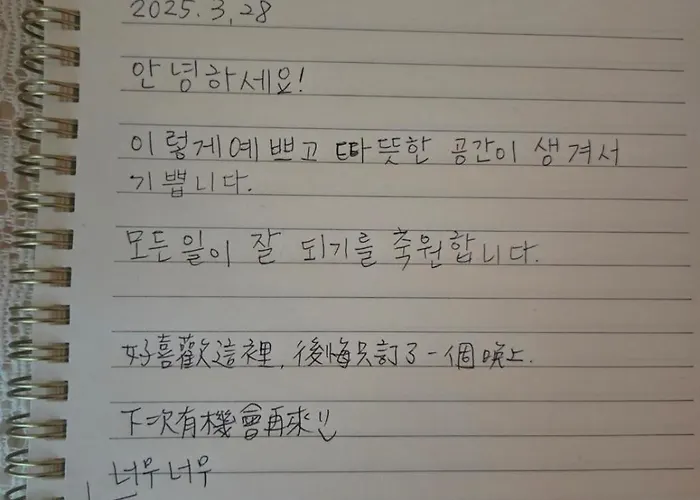 2025. 3. 28
안녕하세요!
이렇게 예쁘고 따뜻한 공간이 생겨서
기쁩니다.
모든일이 잘 되기를 축원합니다.
好喜歡這裡, 後悔只訂了一個晚上.
下次有機會再來!!
너무너무